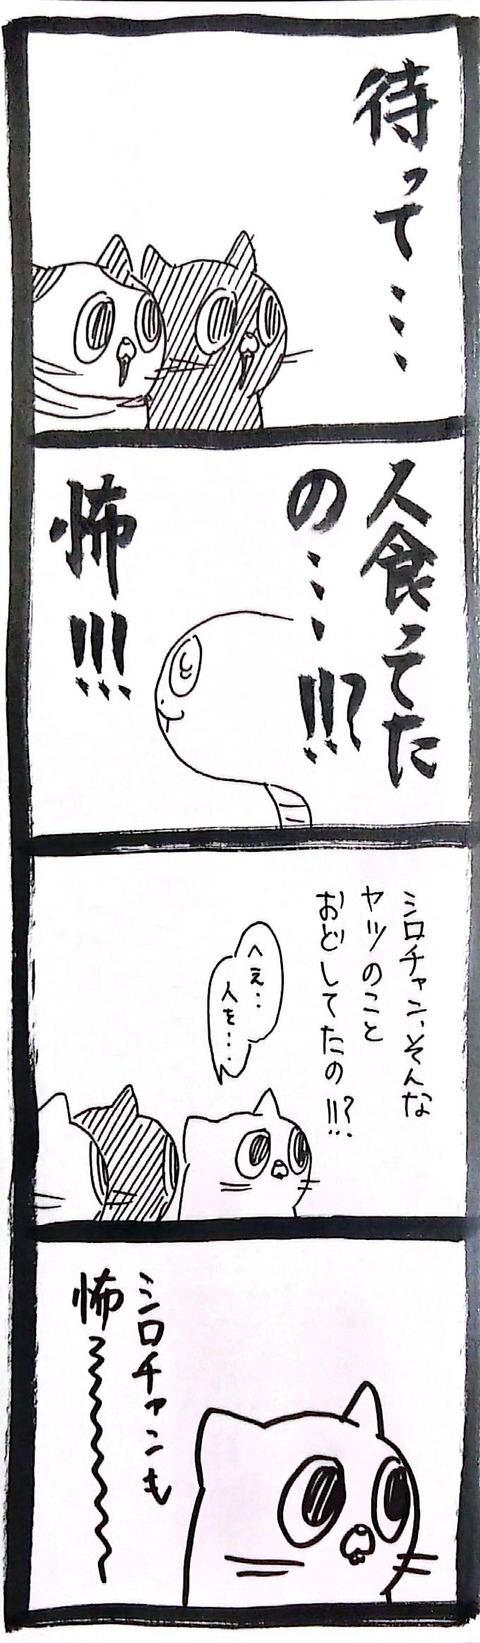 待って…
人食ってた
の…!!?
怖!!!
シロチャン、そんな
ヤツのこと
おどしてたの!!?
へぇ‥
人を…
シロチャンも
怖〜〜〜